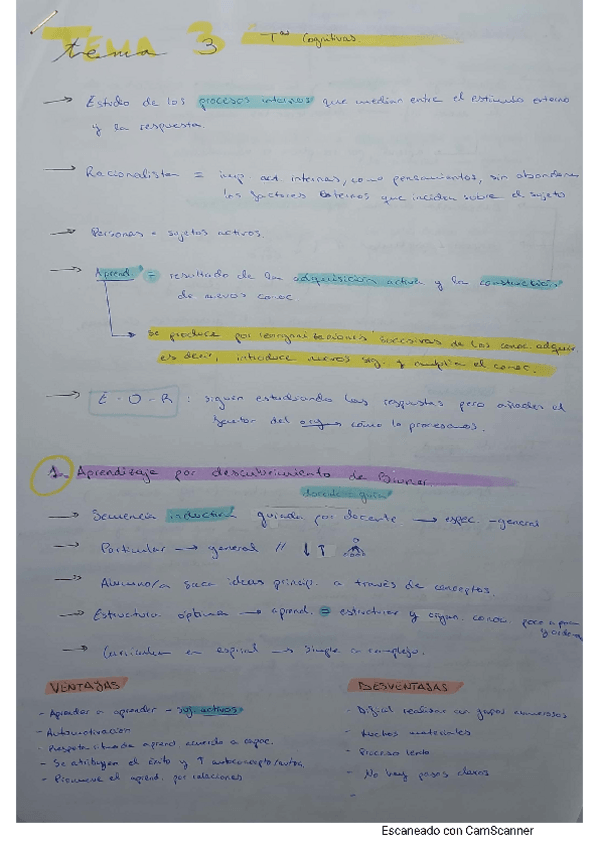 tema 3 Tas Cognitivas
→ Estudio de los procesos internos que median entre el estímulo externo
y la respuesta.
→ Racionalistas = imp. act. internas, como pensamientos, sin abandonar
los factores externos que inciden sobre el sujeto
→ Personas = sujetos activos.
→ Aprend. = resultado de la adquisición activa y la construcción
de nuevos conoc
→ Se produce por reorganizaciones sucesivas de los conoc.
es decir, introduce nuevos sig. y amplía el conoc.
→ E - O - R : siguen estudiando las respuestas pero añaden el
factor del como lo procesamos.
1. Aprendizaje por descubrimiento de Bruner
docente = guía
→ Secuencia inductiva guiada por docente → espec. - general
→ Particular → general // ↓ ↑
→ Alumno/a saca ideas princip. a través de conceptos.
→ Estructura óptima → aprend. = estructurar y organ. conoc. poco a poco
y ordena
→ Curriculum en espiral → simple a complejo.
VENTAJAS
- Aprender a aprender - suj. activos
- Automotivación
- Respeta aprend acuerdo a capac.
- Se atribuyen el éxito y ↑ autoconcepto/autoe.
- Promueve el aprend. por relaciones
DESVENTAJAS
- Difícil realizar con grupos numerosos
- Muchos materiales
- Proceso lento
- No hay pasos claros
-
Escaneado con CamScanner